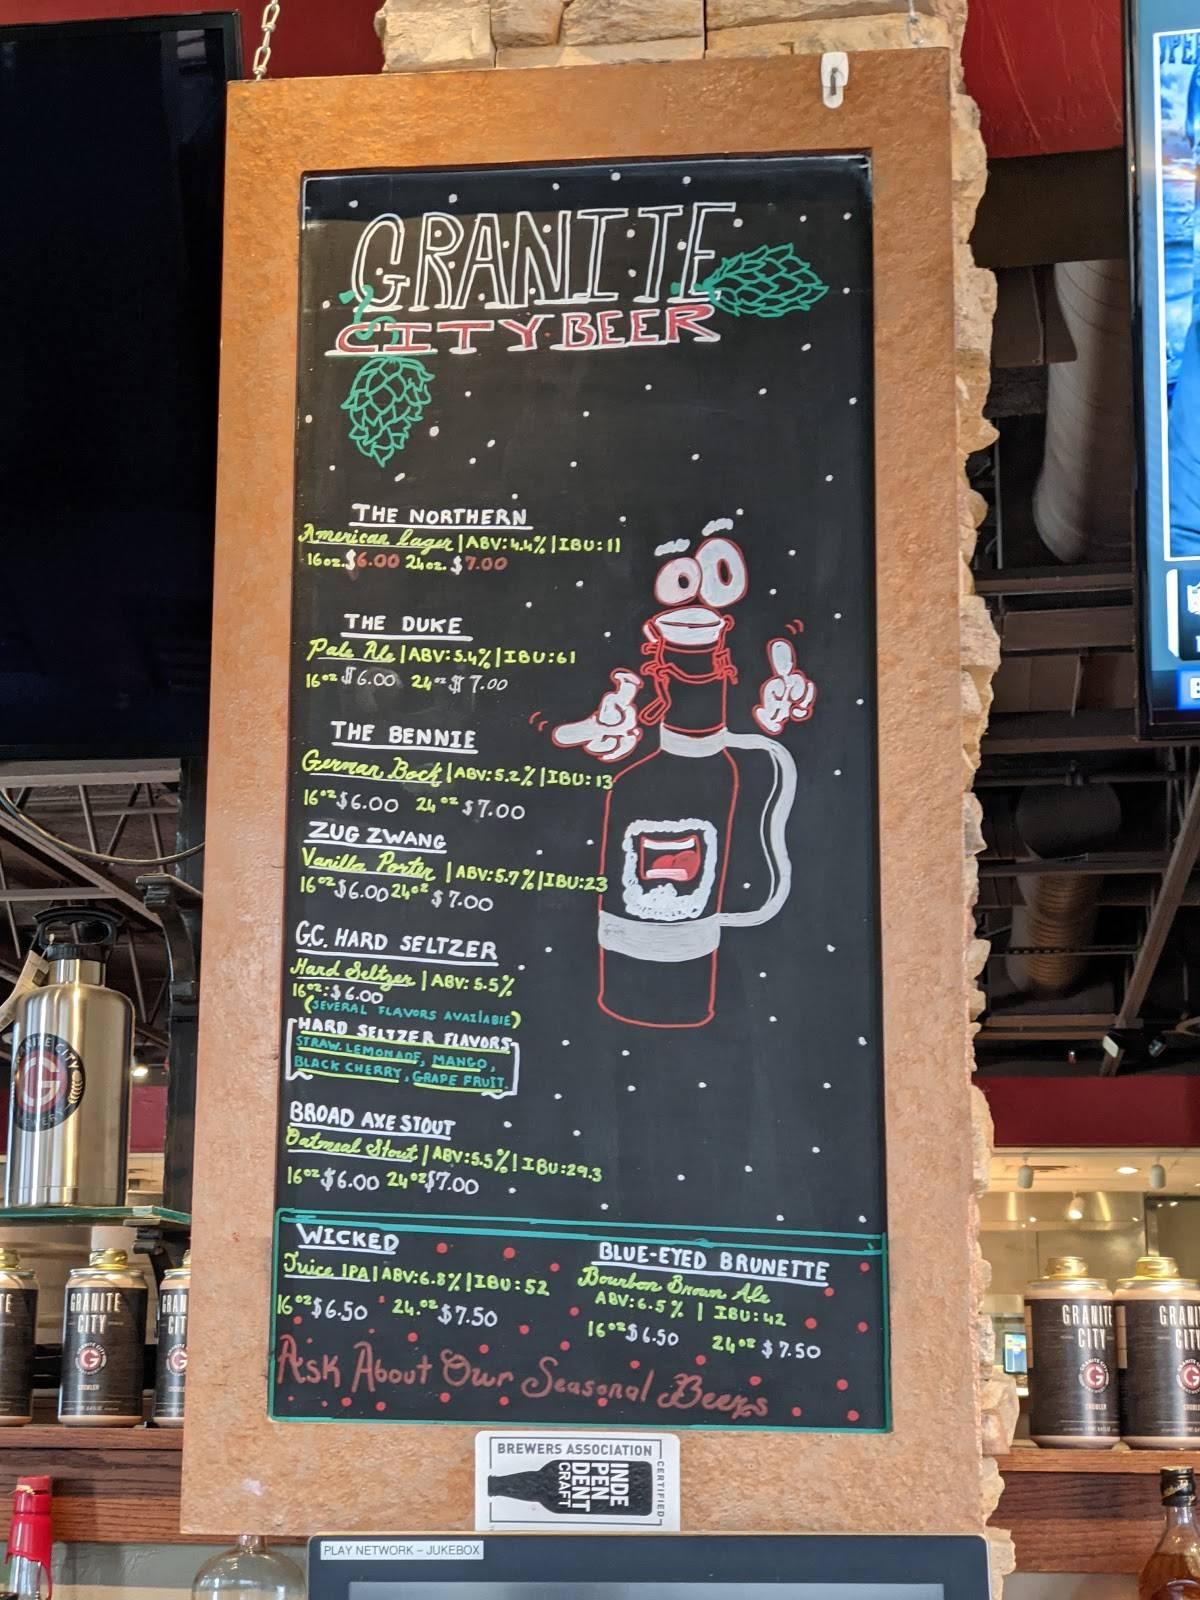 GRANITE
CITY BEER
THE NORTHERN
American Lager | ABV: 4.4% | IBU: 11
16oz. $6.00 24oz. $7.00
THE DUKE
Pale Ale | ABV: 5.4% | IBU: 61
16oz $6.00 24oz $7.00
THE BENNIE
German Bock | ABV: 5.2% | IBU: 13
16oz $6.00 24oz $7.00
ZUG ZWANG
Vanilla Porter | ABV: 5.7% | IBU: 23
16oz $6.00 24oz $7.00
G.C. HARD SELTZER
Hard Seltzer | ABV: 5.5%
16oz: $6.00
(SEVERAL FLAVORS AVAILABLE)
HARD SELTZER FLAVORS
STRAW. LEMONADE, MANGO,
BLACK CHERRY, GRAPE FRUIT.
BROAD AXE STOUT
Oatmeal Stout | ABV: 5.5% | IBU: 29.3
16oz $6.00 24oz $7.00
WICKED
Juice IPA | ABV: 6.8% | IBU: 52
16oz $6.50 24.oz $7.50
BLUE-EYED BRUNETTE
Bourbon Brown Ale
ABV: 6.5% | IBU: 42
16oz $6.50 24oz $7.50
Ask About Our Seasonal Beers
BREWERS ASSOCIATION
CERTIFIED
INDE
PEN
DENT
CRAFT
PLAY NETWORK – JUKEBOX
GRANITE CITY
G
BREWERY
GRANITE
CITY
G
CROWLER
GRANITE
CITY
G
CROWLER